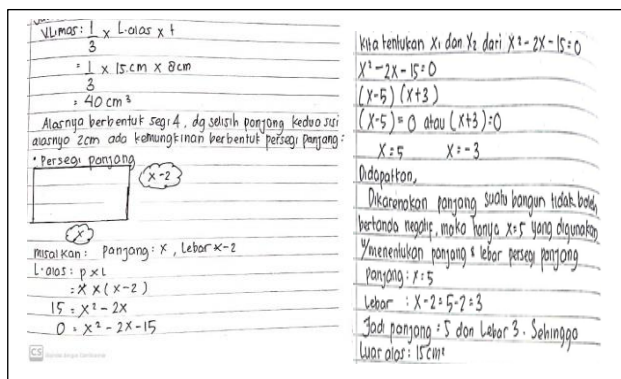 V Limas : 1/3 x L.alas x t
= 1/3 x 15 cm x 8cm
= 40 cm³
Alasnya berbentuk segi 4, dg selisih panjang kedua sisi
alasnya 2cm ada kemungkinan berbentuk persegi panjang :
• Persegi panjang
x-2
x
misalkan : Panjang : x, Lebar x-2
L.alas : p x l
= x x (x-2)
15 = x² - 2x
0 = x² - 2x - 15
CS
Kita tentukan x₁ dan x₂ dari x² - 2x - 15 = 0
x² - 2x - 15 = 0
(x-5) (x+3)
(x-5) = 0 atau (x+3) = 0
x = 5 x = -3
Didapatkan,
Dikarenakan panjang suatu bangun tidak boleh
bertanda negatif, maka hanya x=5 yang digunakan
u/menentukan panjang & lebar persegi panjang
panjang : x = 5
Lebar : x-2 = 5-2 = 3
Jadi panjang = 5 dan Lebar 3. Sehingga
Luas alas : 15cm²